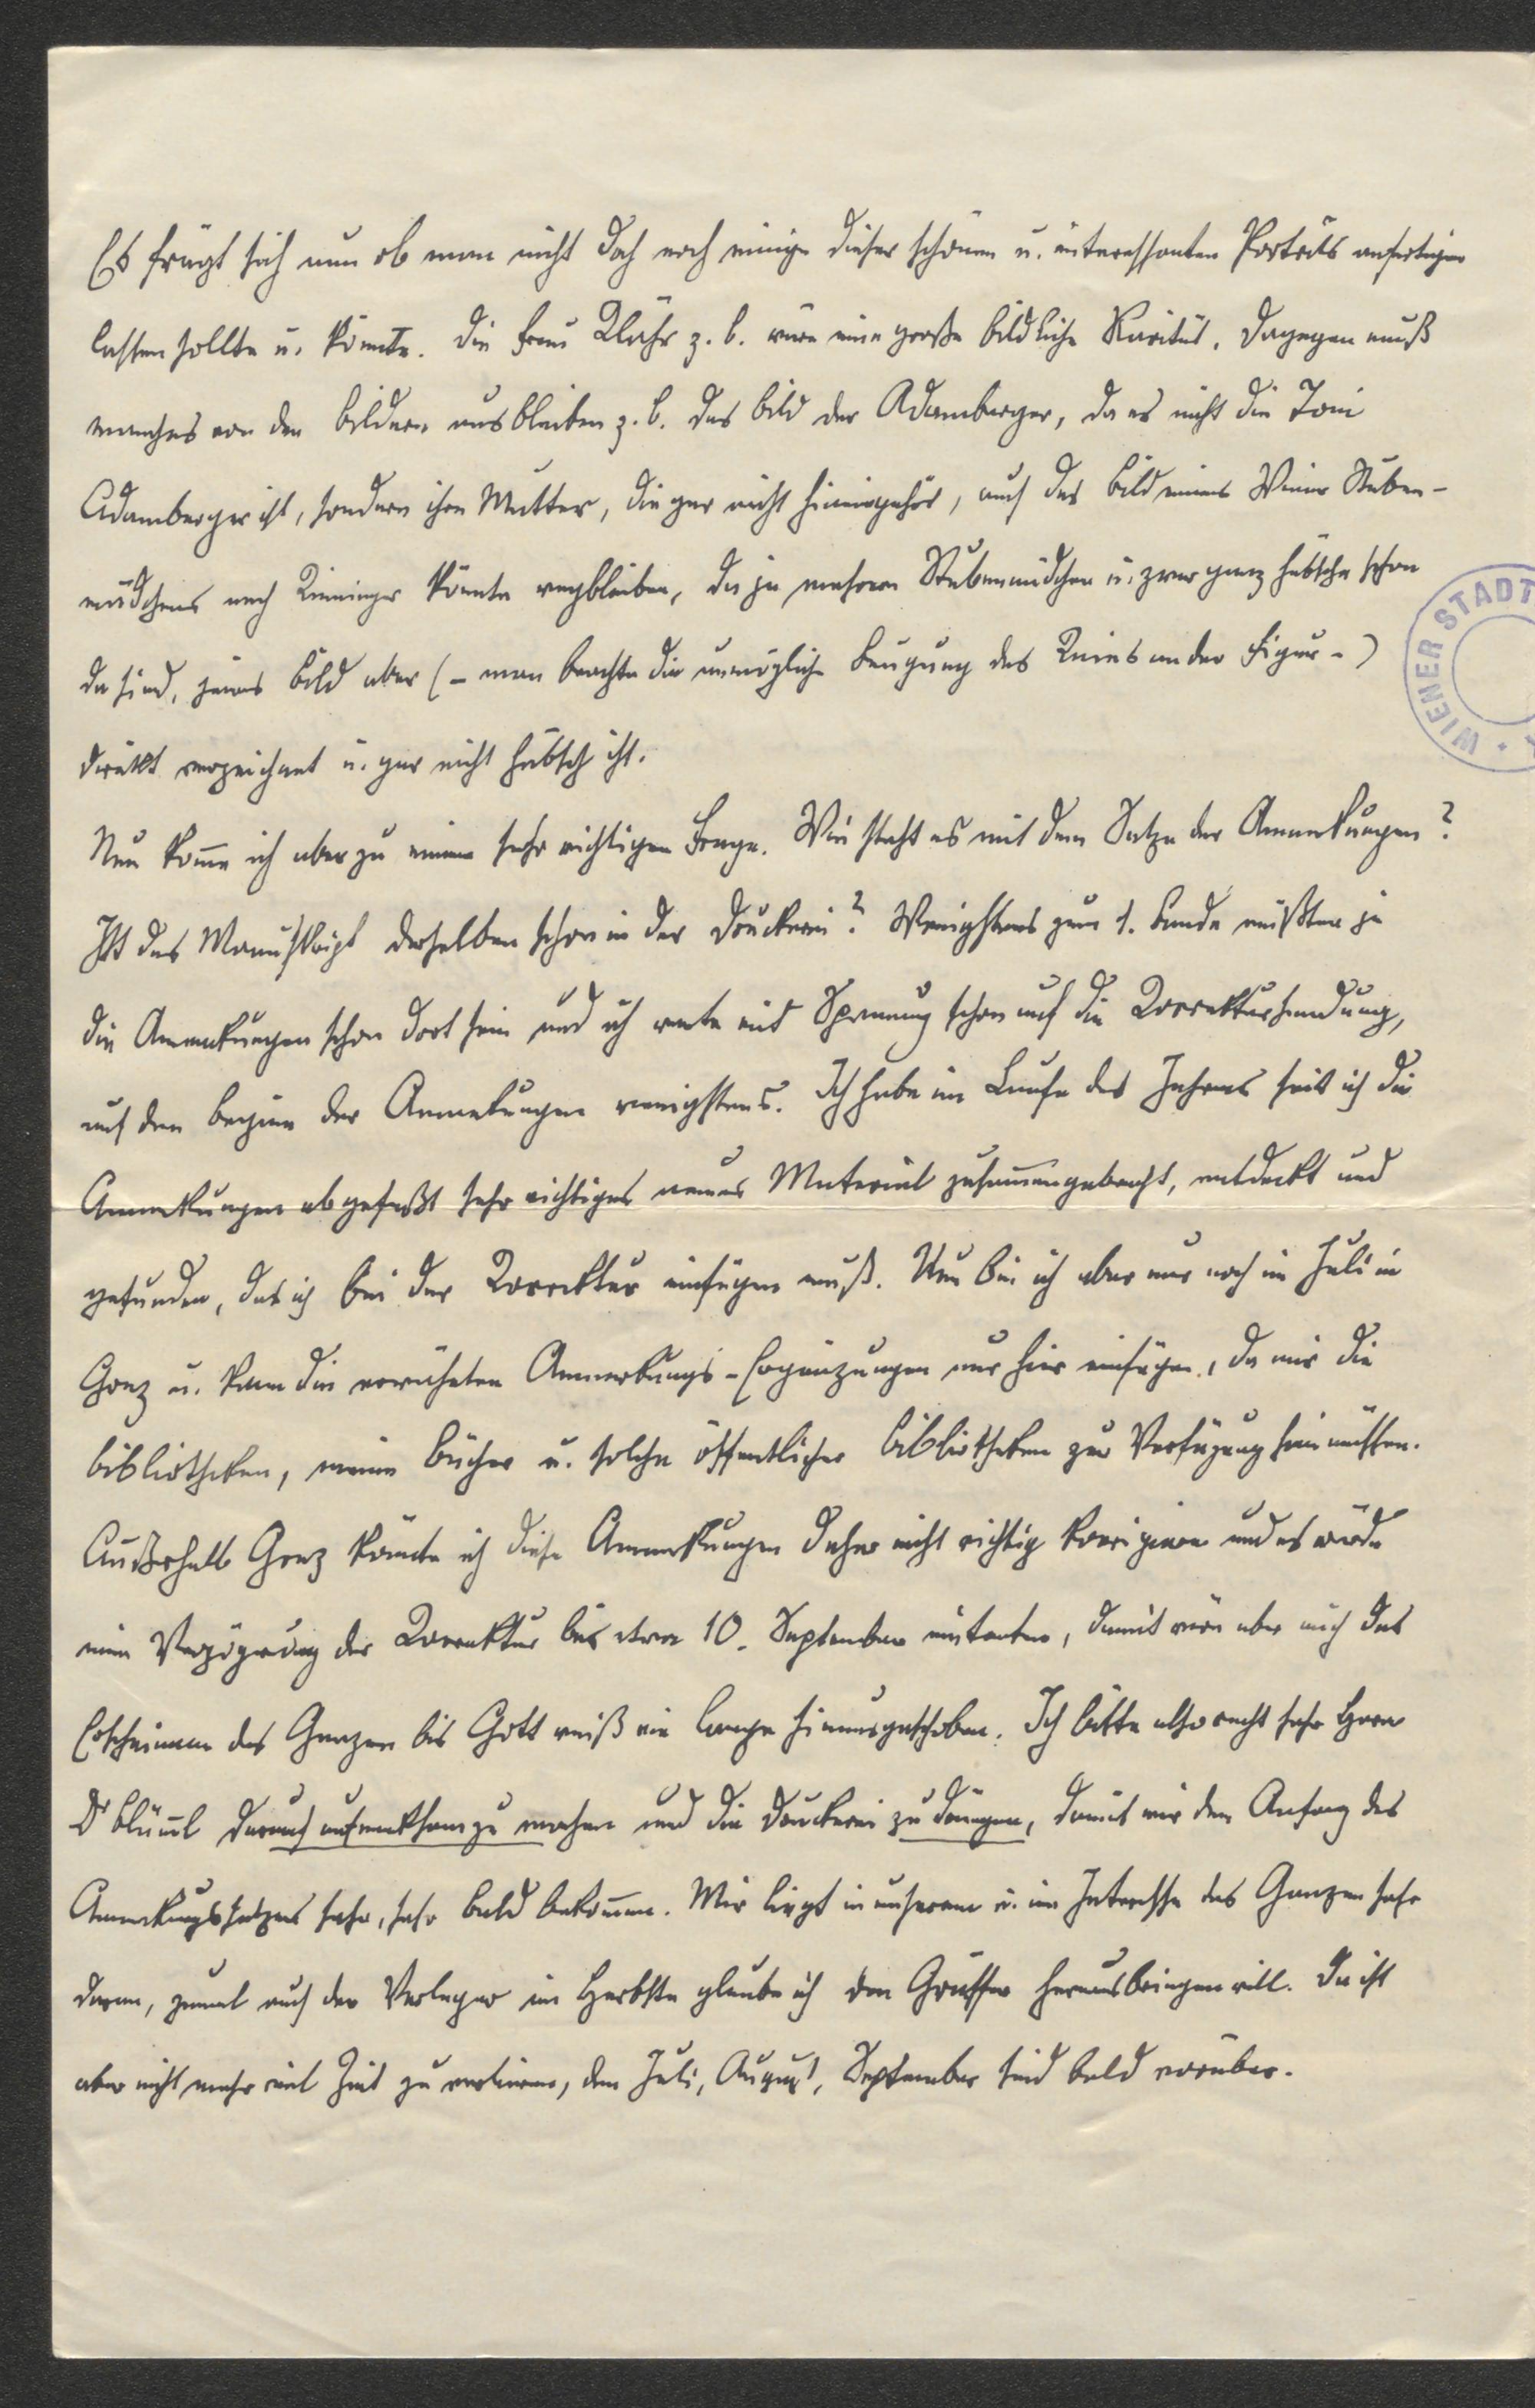 Es frägt sich nun ob man nicht doch noch einige dieser schönen u. interessanten Porträts anfertigen
lassen sollte u. könnte. Die Frau Klähr z. B. wäre eine große bildliche Rarität. Dagegen muß
manches von den Bildern ausbleiben z. B. das Bild der Adamberger, da es nicht die Toni
Adamberger ist, sondern ihre Mutter, die gar nicht hineingehört, auch das Bild eines Wiener Stuben-
mädchens nach Kininger könnte wegbleiben, da ja mehrere Stubenmädchen u. zwar ganz hübsche schon
da sind, jenes Bild aber (- man beachte die unmögliche Beugung des Knies an der Figur -)
direkt verzeichnet u. gar nicht hübsch ist.
Nun kom̅e ich aber zu einer sehr wichtigen Frage. Wie steht es mit dem Satze der Anmerkungen?
Ist das Manuskript derselben schon in der Druckerei? Wenigstens zum 1. Bande müßten ja
die Anmerkungen schon dort sein und ich warte mit Spannung schon auf die Korrektursendung,
auf den Beginn der Anmerkungen wenigstens. Ich habe im Laufe des Jahres seit ich die
Anmerkungen abgefaßt sehr wichtiges neues Material zusam̅engebracht, entdeckt und
gefunden, das ich bei der Korrektur einfügen muß. Nun bin ich aber nur noch im Juli in
Graz u. kann die erwähnten Anmerkungs-Ergänzungen nur hier einfügen, da mir die
Bibliotheken, meine Bücher u. solche öffentlicher Bibliotheken zur Verfügung sein müssen.
Außerhalb Graz könnte ich diese Anmerkungen daher nicht richtig korrigieren und es würde
eine Verzögerung der Korrektur bis etwa 10. September eintreten, damit wäre aber auch das
Erscheinen des Ganzen bis Gott weiß wie lange hinausgeschoben. Ich bitte also recht sehr Herrn
Dr Blüm̅l darauf aufmerksam zu machen und die Druckerei zu drängen, damit wir den Anfang des
Anmerkungssatzes sehr, sehr bald bekom̅en. Mir liegt in unserem u. im Interesse des Ganzen sehr
daran, zumal auch der Verleger im Herbste glaube ich den Gräffer herausbringen will. Da ist
aber nicht mehr viel Zeit zu verlieren, denn Juli, August, September sind bald vorüber.
WIENER STADT